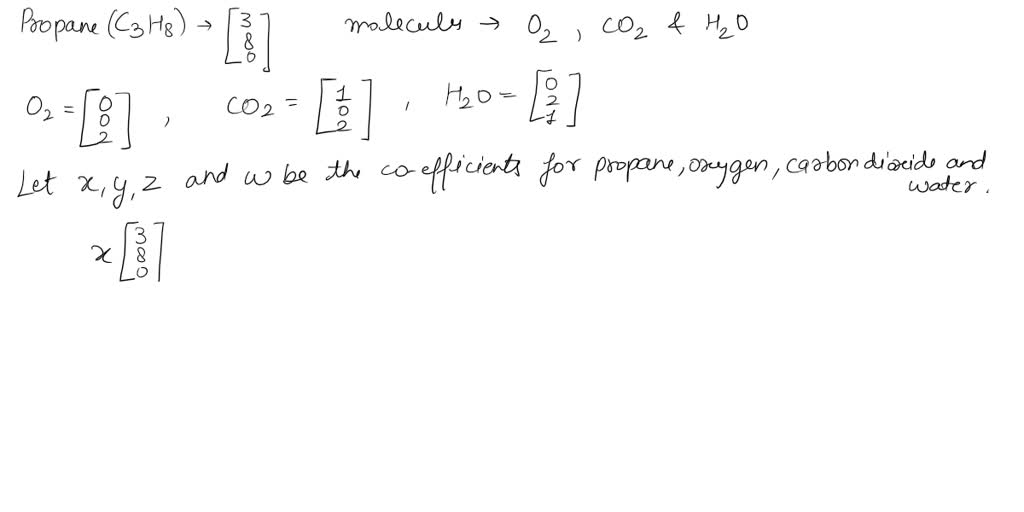 Propane (C3H8) → [3 8 0] molecules → O2, CO2 & H2O
O2 = [0 0 2], CO2 = [1 0 2], H2O = [0 2 1]
Let x, y, z and w be the co-efficients for propane, oxygen, carbondioxide and
water.
x [3 8 0]